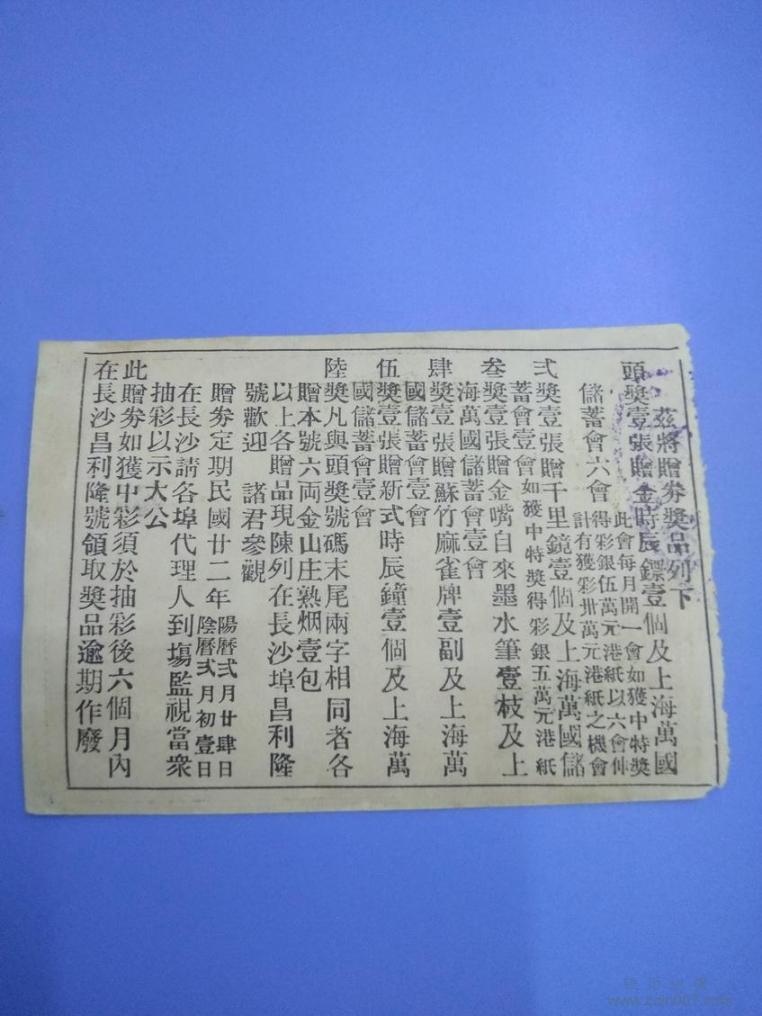 茲將贈券獎品列下
頭獎壹張贈金時辰鏢壹個及上海萬國
儲蓄會六會
此會每月開一會如獲中特獎
得彩銀伍萬元港紙以六會伸
計有獲彩卅萬元港紙之機會
弍獎壹張贈千里鏡壹個及上海萬國儲
蓄會壹會如獲中特獎得彩銀五萬元港紙
叁獎壹張贈金嘴自來墨水筆壹枝及上
海萬國儲蓄會壹會
肆獎壹張贈蘇竹麻雀牌壹副及上海萬
國儲蓄會壹會
伍獎壹張贈新式時辰鐘壹個及上海萬
國儲蓄會壹會
陸獎凡與頭獎號碼末尾兩字相同者各
贈本號六両金山庄熟烟壹包
以上各贈品現陳列在長沙埠昌利隆
號歡迎 諸君參觀
贈券定期民國廿二年
陽曆弍月廿肆日
陰曆弍月初壹日
在長沙請各埠代理人到塲監視當衆
抽彩以示大公
此贈券如獲中彩須於抽彩後六個月內
在長沙昌利隆號領取獎品逾期作廢